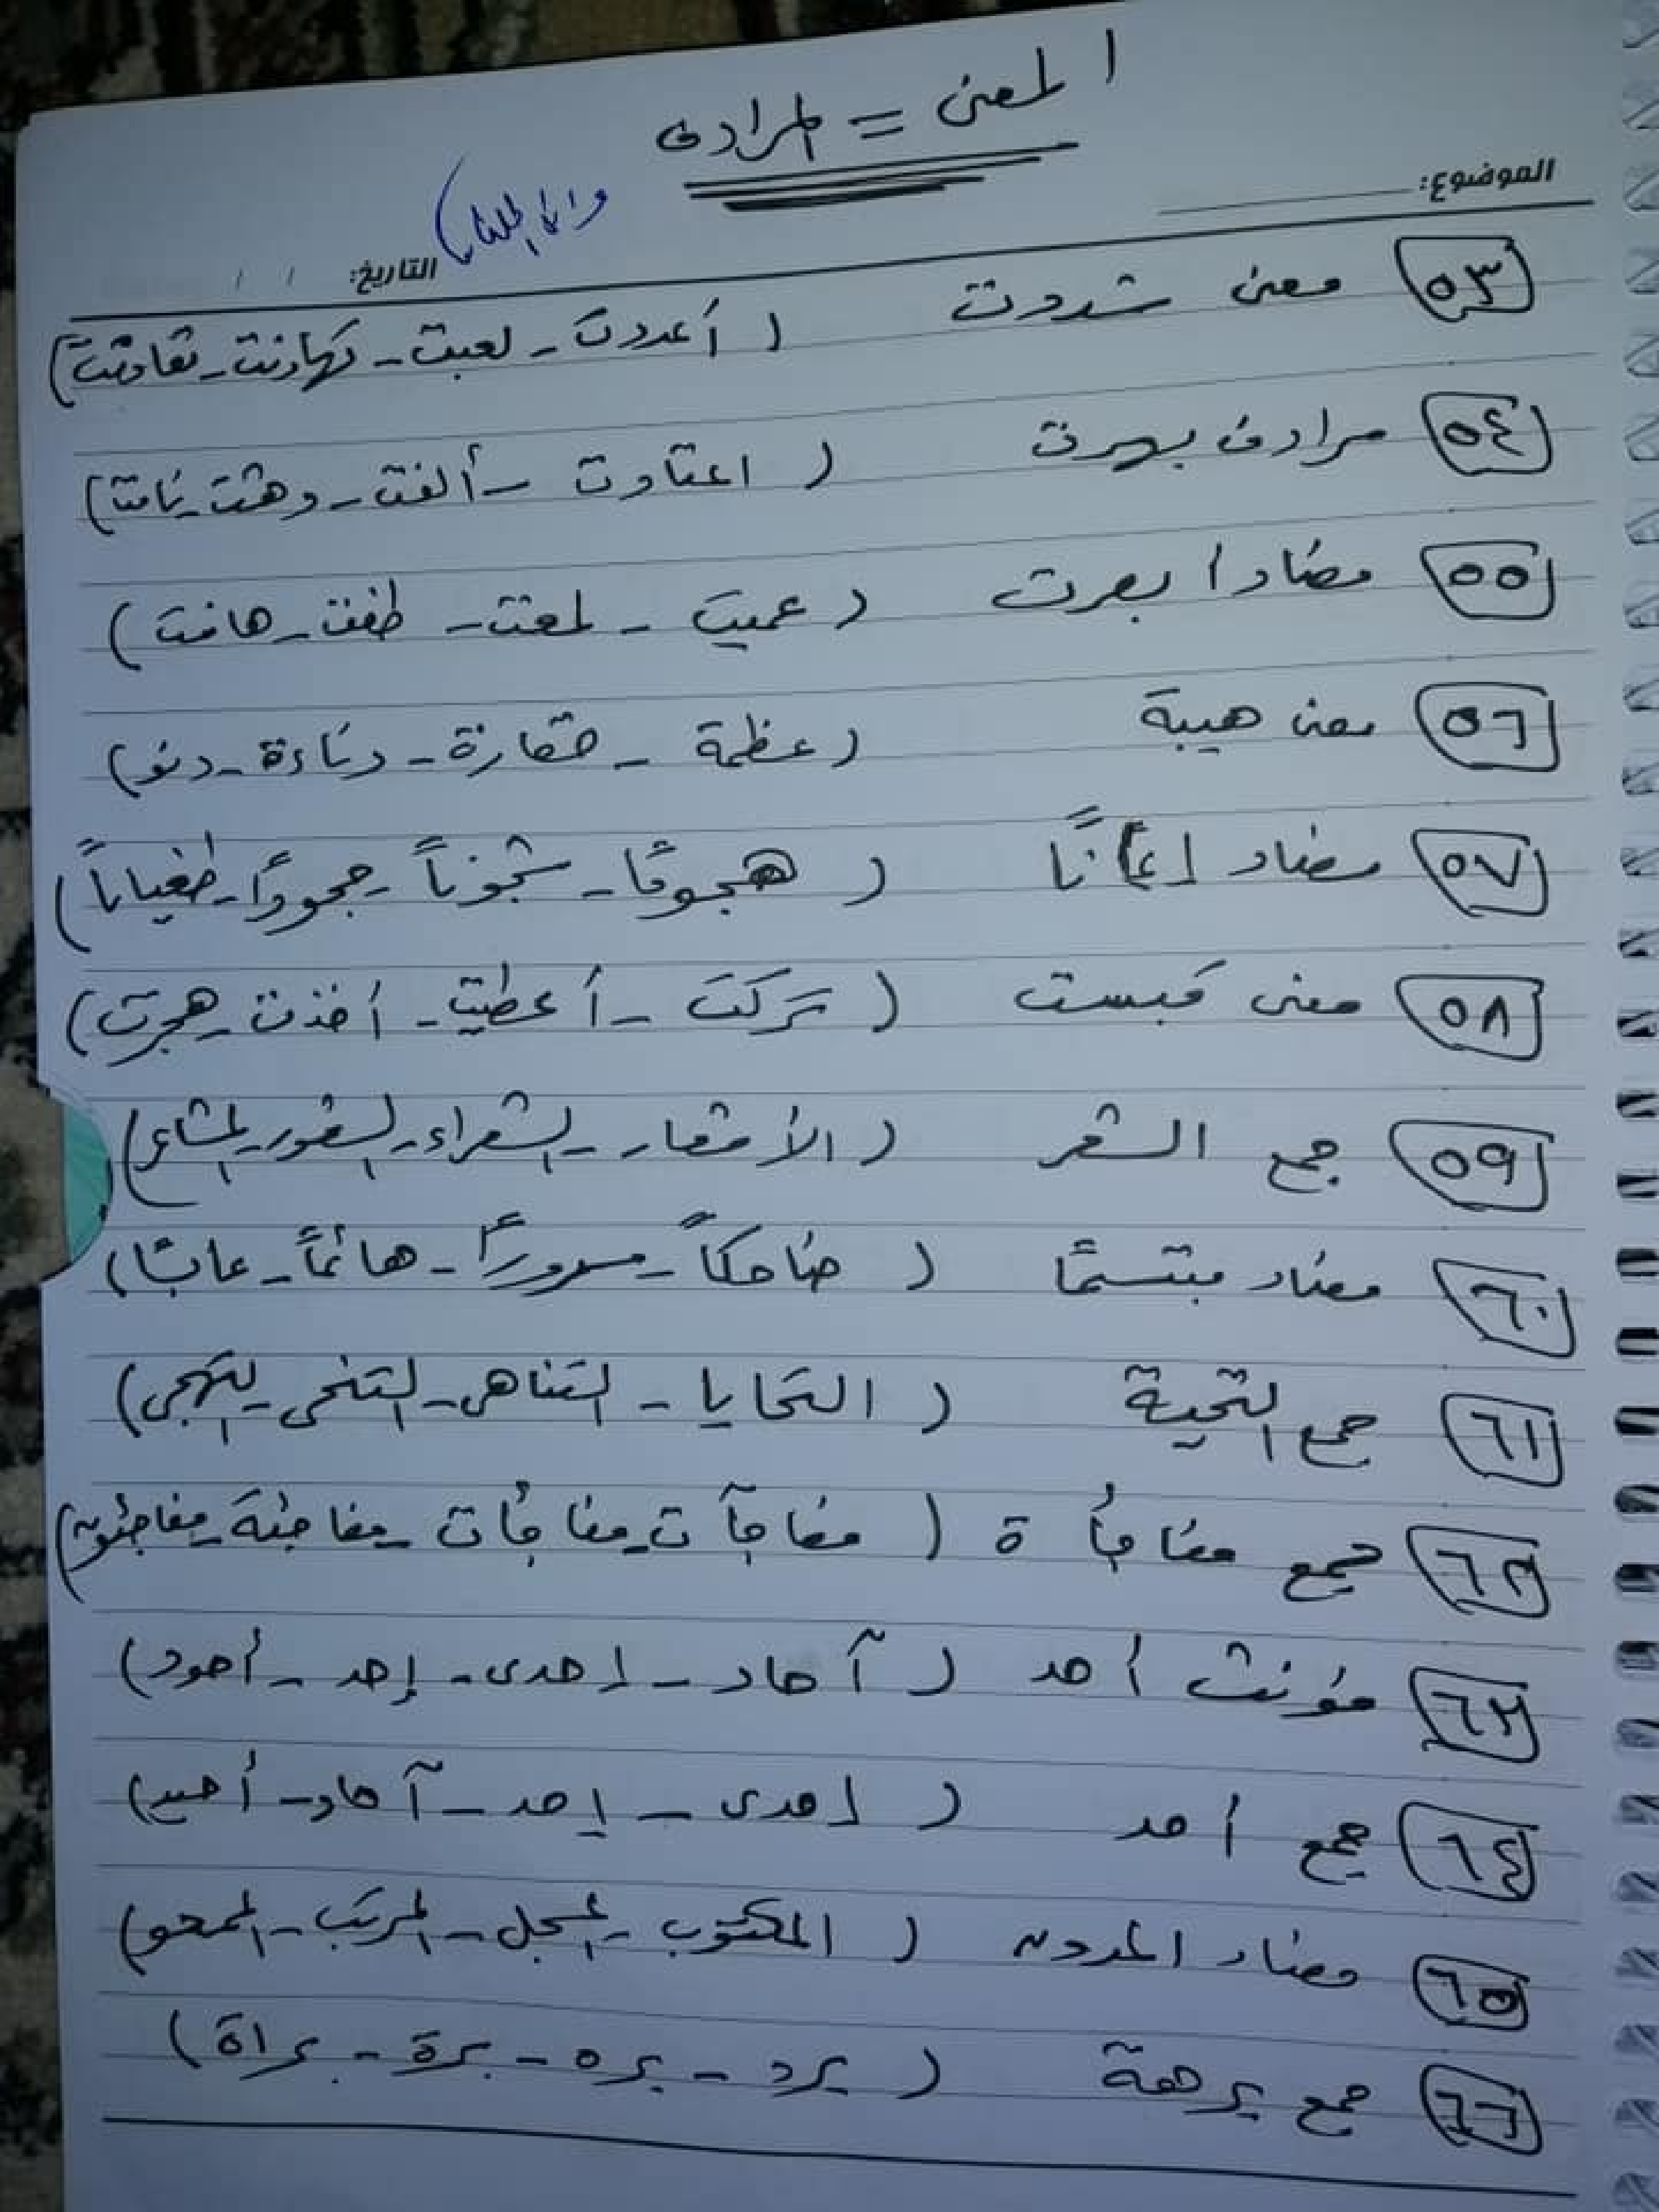 المعنى = المرادف
الموضوع:
التاريخ: / /
٥٣ معنى شددت ( أعددت - لعبت - تهاونت - تقاوت )
٥٤ مرادف بهرت ( اعتادت - ألفت - دهشت - نامت )
٥٥ مضاد أبصرت ( عميت - لمعت - طفت - هانت )
٥٦ معنى هيبة ( عظمة - حقارة - دناءة - دنو )
٥٧ مضاد إيمانًا ( هجومًا - شجونًا - جحودًا - طغيانًا )
٥٨ معنى قبست ( تركت - أعطيت - أخذت - هجرت )
٥٩ جمع الشعر ( الأشعار - الشعراء - الشعور - المشاعر )
٦٠ مضاد مبتسمًا ( ضاحكاً - مسروراً - هائماً - عابسًا )
٦١ جمع التحية ( التحايا - التناهى - التنحى - التهجى )
٦٢ جمع مفاجأة ( مفاجآت - مفاجأت - مفاجئة - مفاجئون )
٦٣ مؤنث أحد ( آحاد - إحدى - إحد - أحود )
٦٤ جمع أحد ( إحدى - إحد - آحاد - أحيد )
٦٥ مضاد المدون ( المكتوب - المسجل - المرتب - الممحو )
٦٦ جمع برهة ( برد - بره - برة - براة )